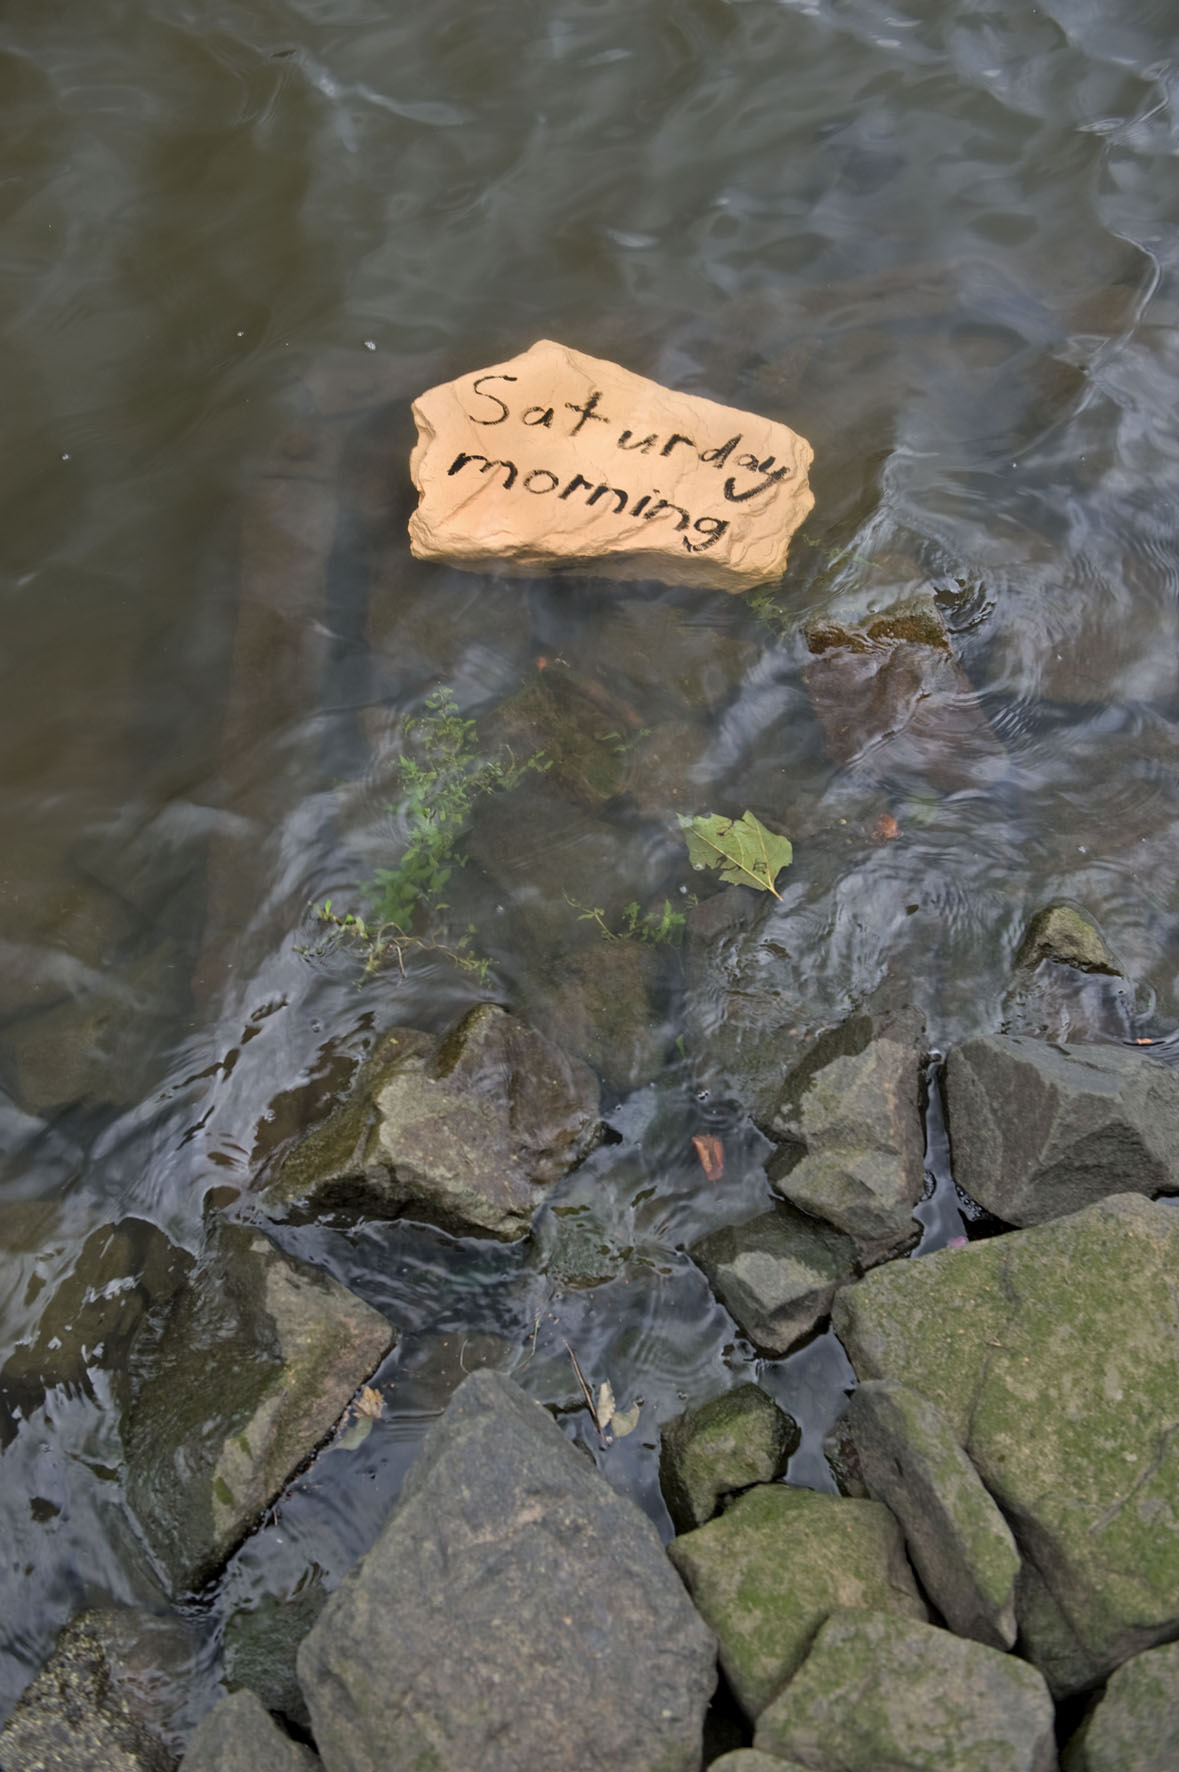 Saturday
morning